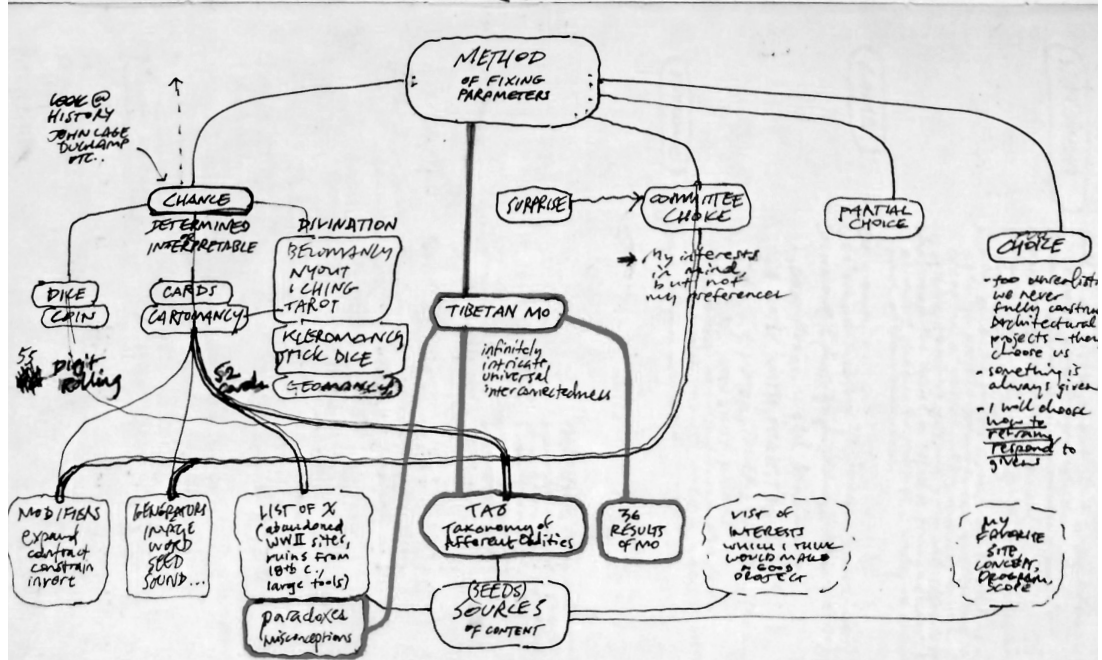 METHOD
OF FIXING
PARAMETERS
LOOK @
HISTORY
JOHN CAGE
DUCHAMP
ETC..
CHANCE
DETERMINED
INTERPRETABLE
DIVINATION
BELOMANCY
NYOUT
I CHING
TAROT
KLEROMANCY
STICK DICE
GEOMANCY
DICE
COIN
CARDS
CARTOMANCY
55
Digit
Rolling
52
cards
SURPRISE
COMMITTEE
CHOICE
My interests
in mind,
but not
my preferences
PARTIAL
CHOICE
CHOICE
- too unrealist
we never
fully constru
Architectural
projects - the
choose us
- something is
always given
- I will choose
how to
respond to
givens
TIBETAN MO
infinitely
intricate
universal
interconnectedness
MODIFIERS
expand
contract
constrain
invert
GENERATORS
IMAGE
WORD
SEED
SOUND...
LIST OF X
(abandoned
WWII sites,
ruins from
18th c.,
large tools)
paradoxes
misconceptions
TAO
Taxonomy of
Afferent Oddities
36
RESULTS
OF MO
(SEEDS)
SOURCES
OF CONTENT
LIST OF
INTERESTS
WHICH I THINK
WOULD MAKE
A GOOD
PROJECT
MY
FAVORITE
SITE
CONCEPT,
PROGRAM,
SCOPE